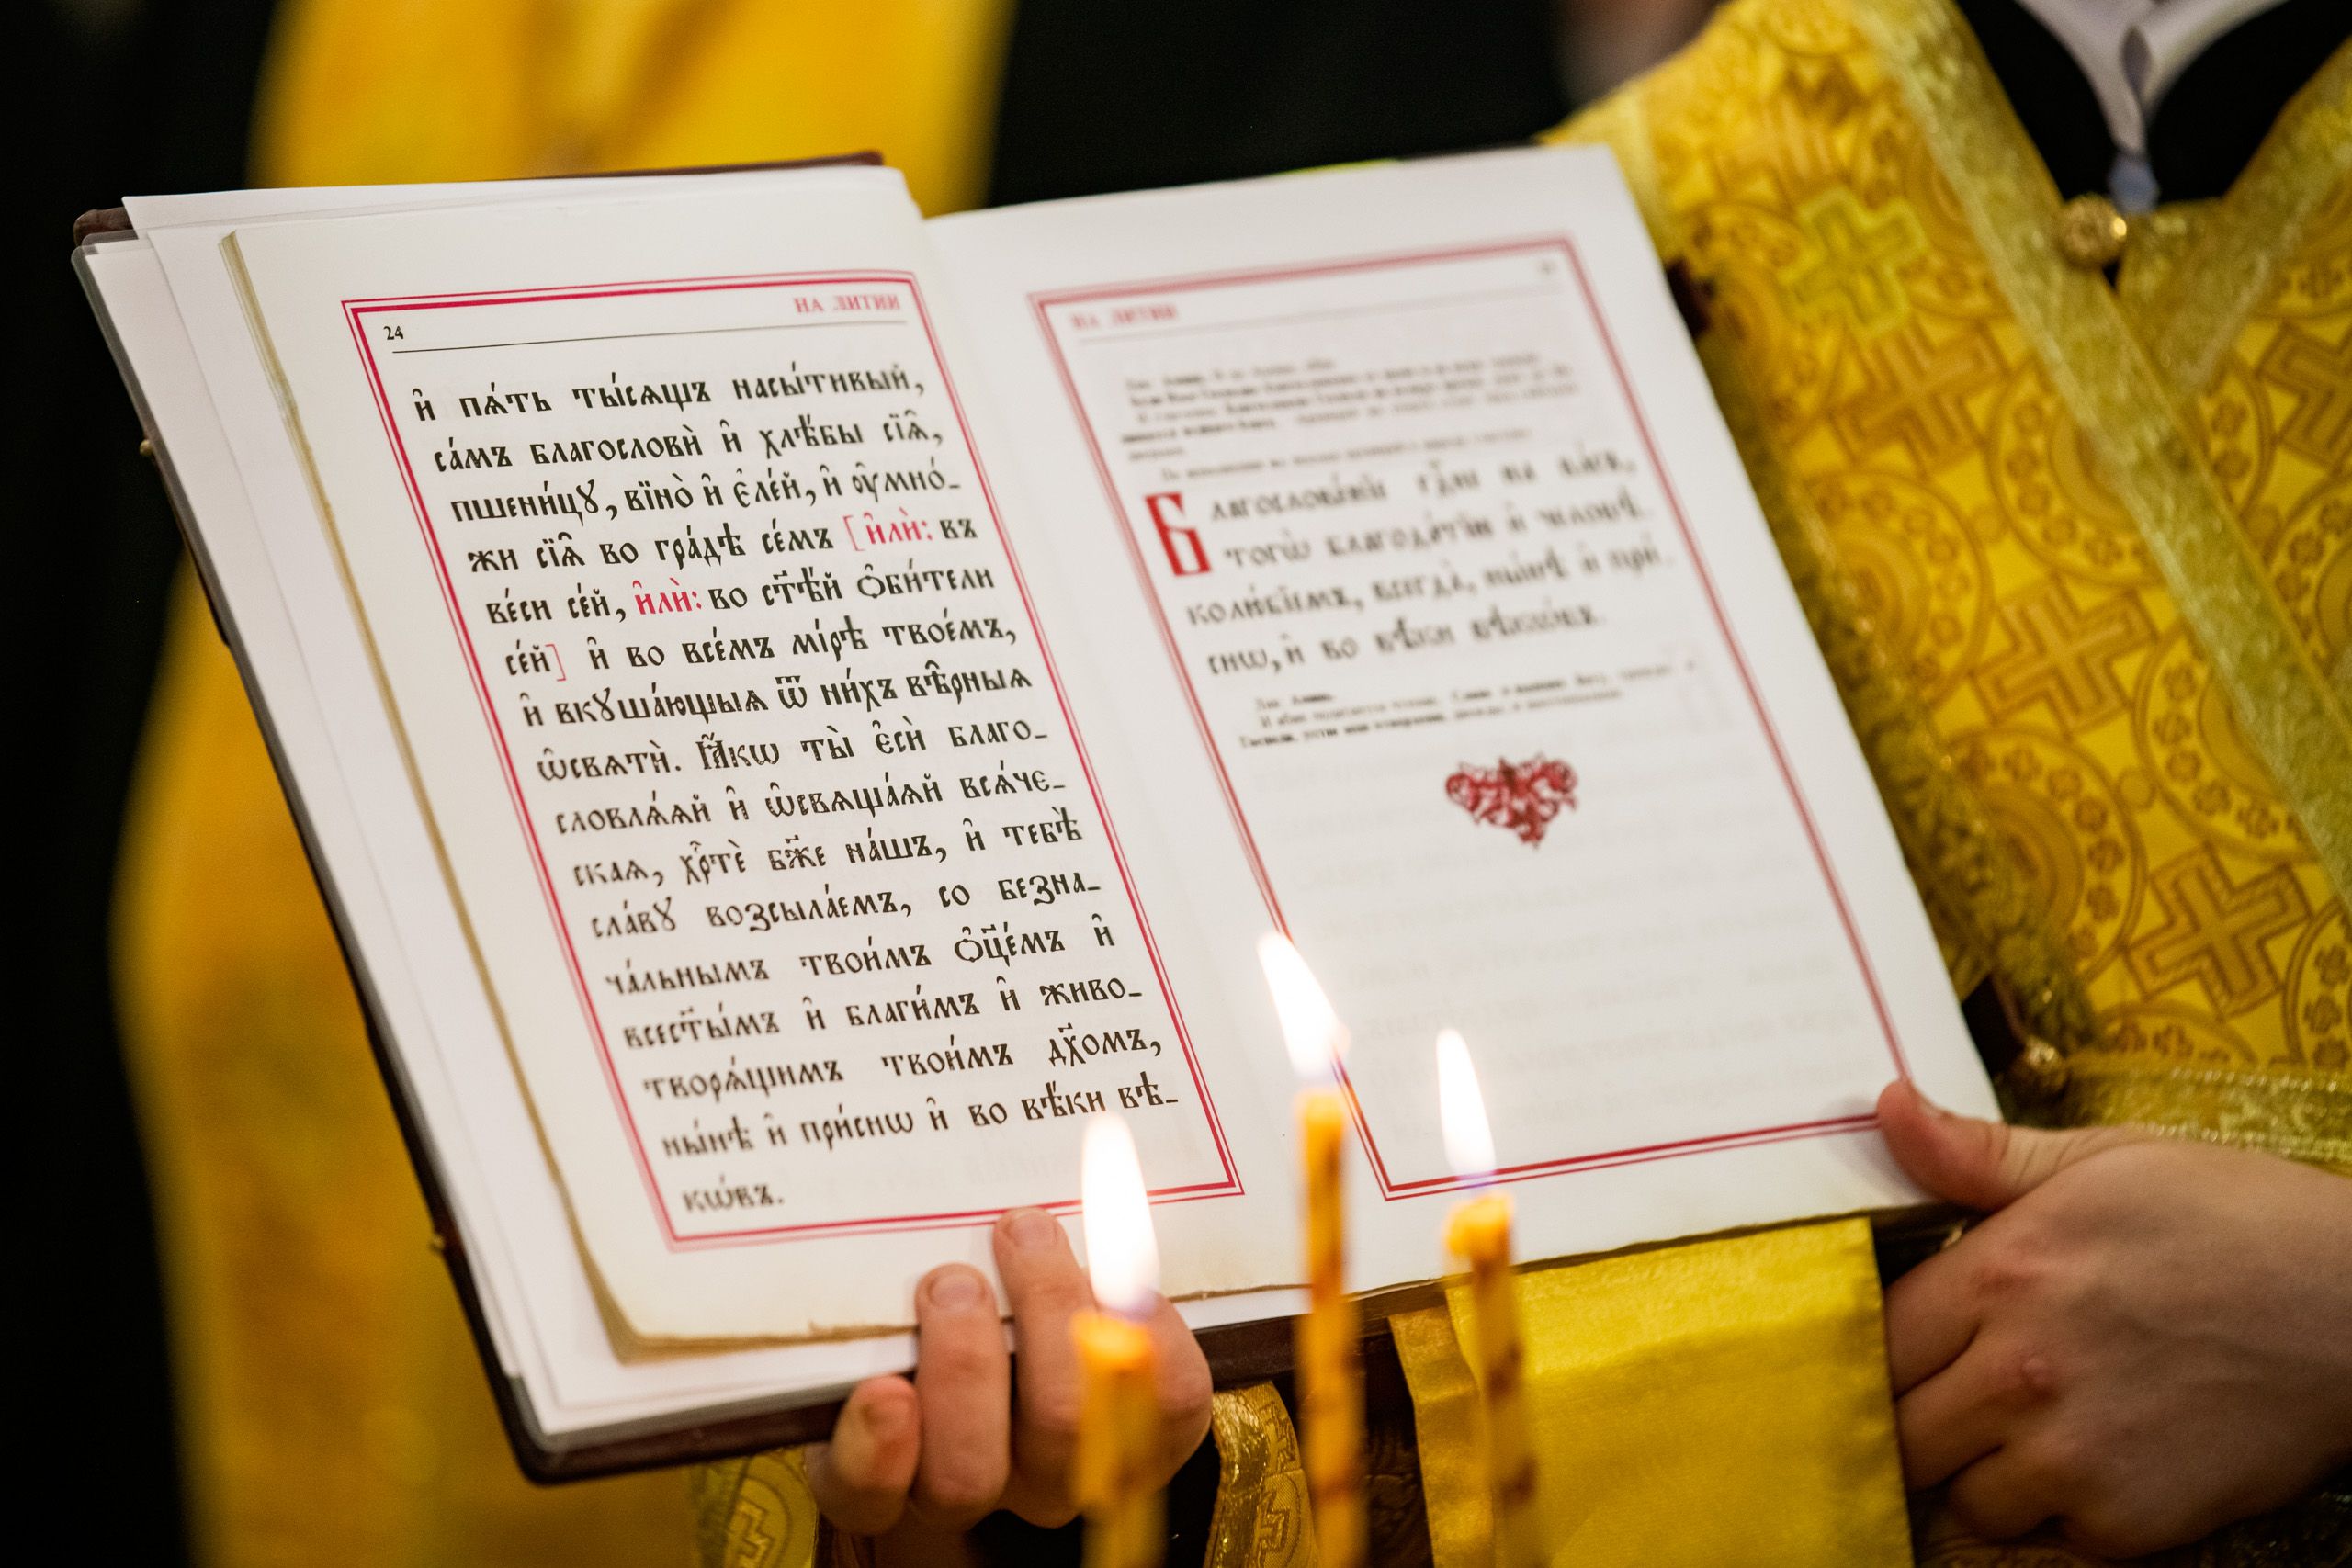 24
НА ЛИТИИ
и҆ пѧ́ть ты́сѧщъ насы́тивый,
са́мъ благословѝ и҆ хлѣ́бы сїѧ̑,
пшени́цꙋ, вїно̀ и҆ є҆ле́й, и҆ ᲂу҆мно́-
жи сїѧ̑ во гра́дѣ се́мъ [и҆лѝ: въ
ве́си се́й, и҆лѝ: во ст҃ѣ́й ѻ҆би́тели
се́й] и҆ во все́мъ мі́рѣ твое́мъ,
и҆ вкꙋша́ющыѧ ѿ ни́хъ вѣ̑рныѧ
ѡ҆свѧтѝ. Ꙗ҆́кѡ ты̀ є҆сѝ благо-
словлѧ́ѧй и҆ ѡ҆свѧща́ѧй всѧ́че-
скаѧ, хрⷭ҇тѐ бж҃е на́шъ, и҆ тебѣ̀
сла́вꙋ возсыла́емъ, со безна-
ча́льнымъ твои́мъ ѻ҆ц҃е́мъ и҆
всест҃ы́мъ и҆ благи́мъ и҆ живо-
творѧ́щимъ твои́мъ дх҃омъ,
ны́нѣ и҆ при́снѡ и҆ во вѣ́ки вѣ-
кѡ́въ.
НА ЛИТИИ
Благослове́нїе гдⷭ҇не на ва́съ,
тогѡ̀ благода́тїю и҆ человѣ-
колю́бїемъ, всегда̀, ны́нѣ и҆ при́-
снѡ, и҆ во вѣ́ки вѣкѡ́въ.